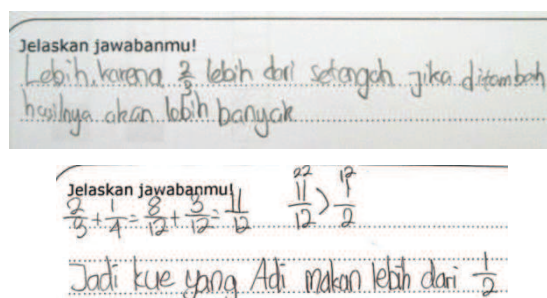 Jelaskan jawabanmu!
Lebih, karena 2/3 lebih dari setengah jika ditambah
hasilnya akan lebih banyak
Jelaskan jawabanmu!
2/3 + 1/4 = 8/12 + 3/12 = 11/12 22 11/12 > 12 1/2
Jadi kue yang Adi makan lebih dari 1/2